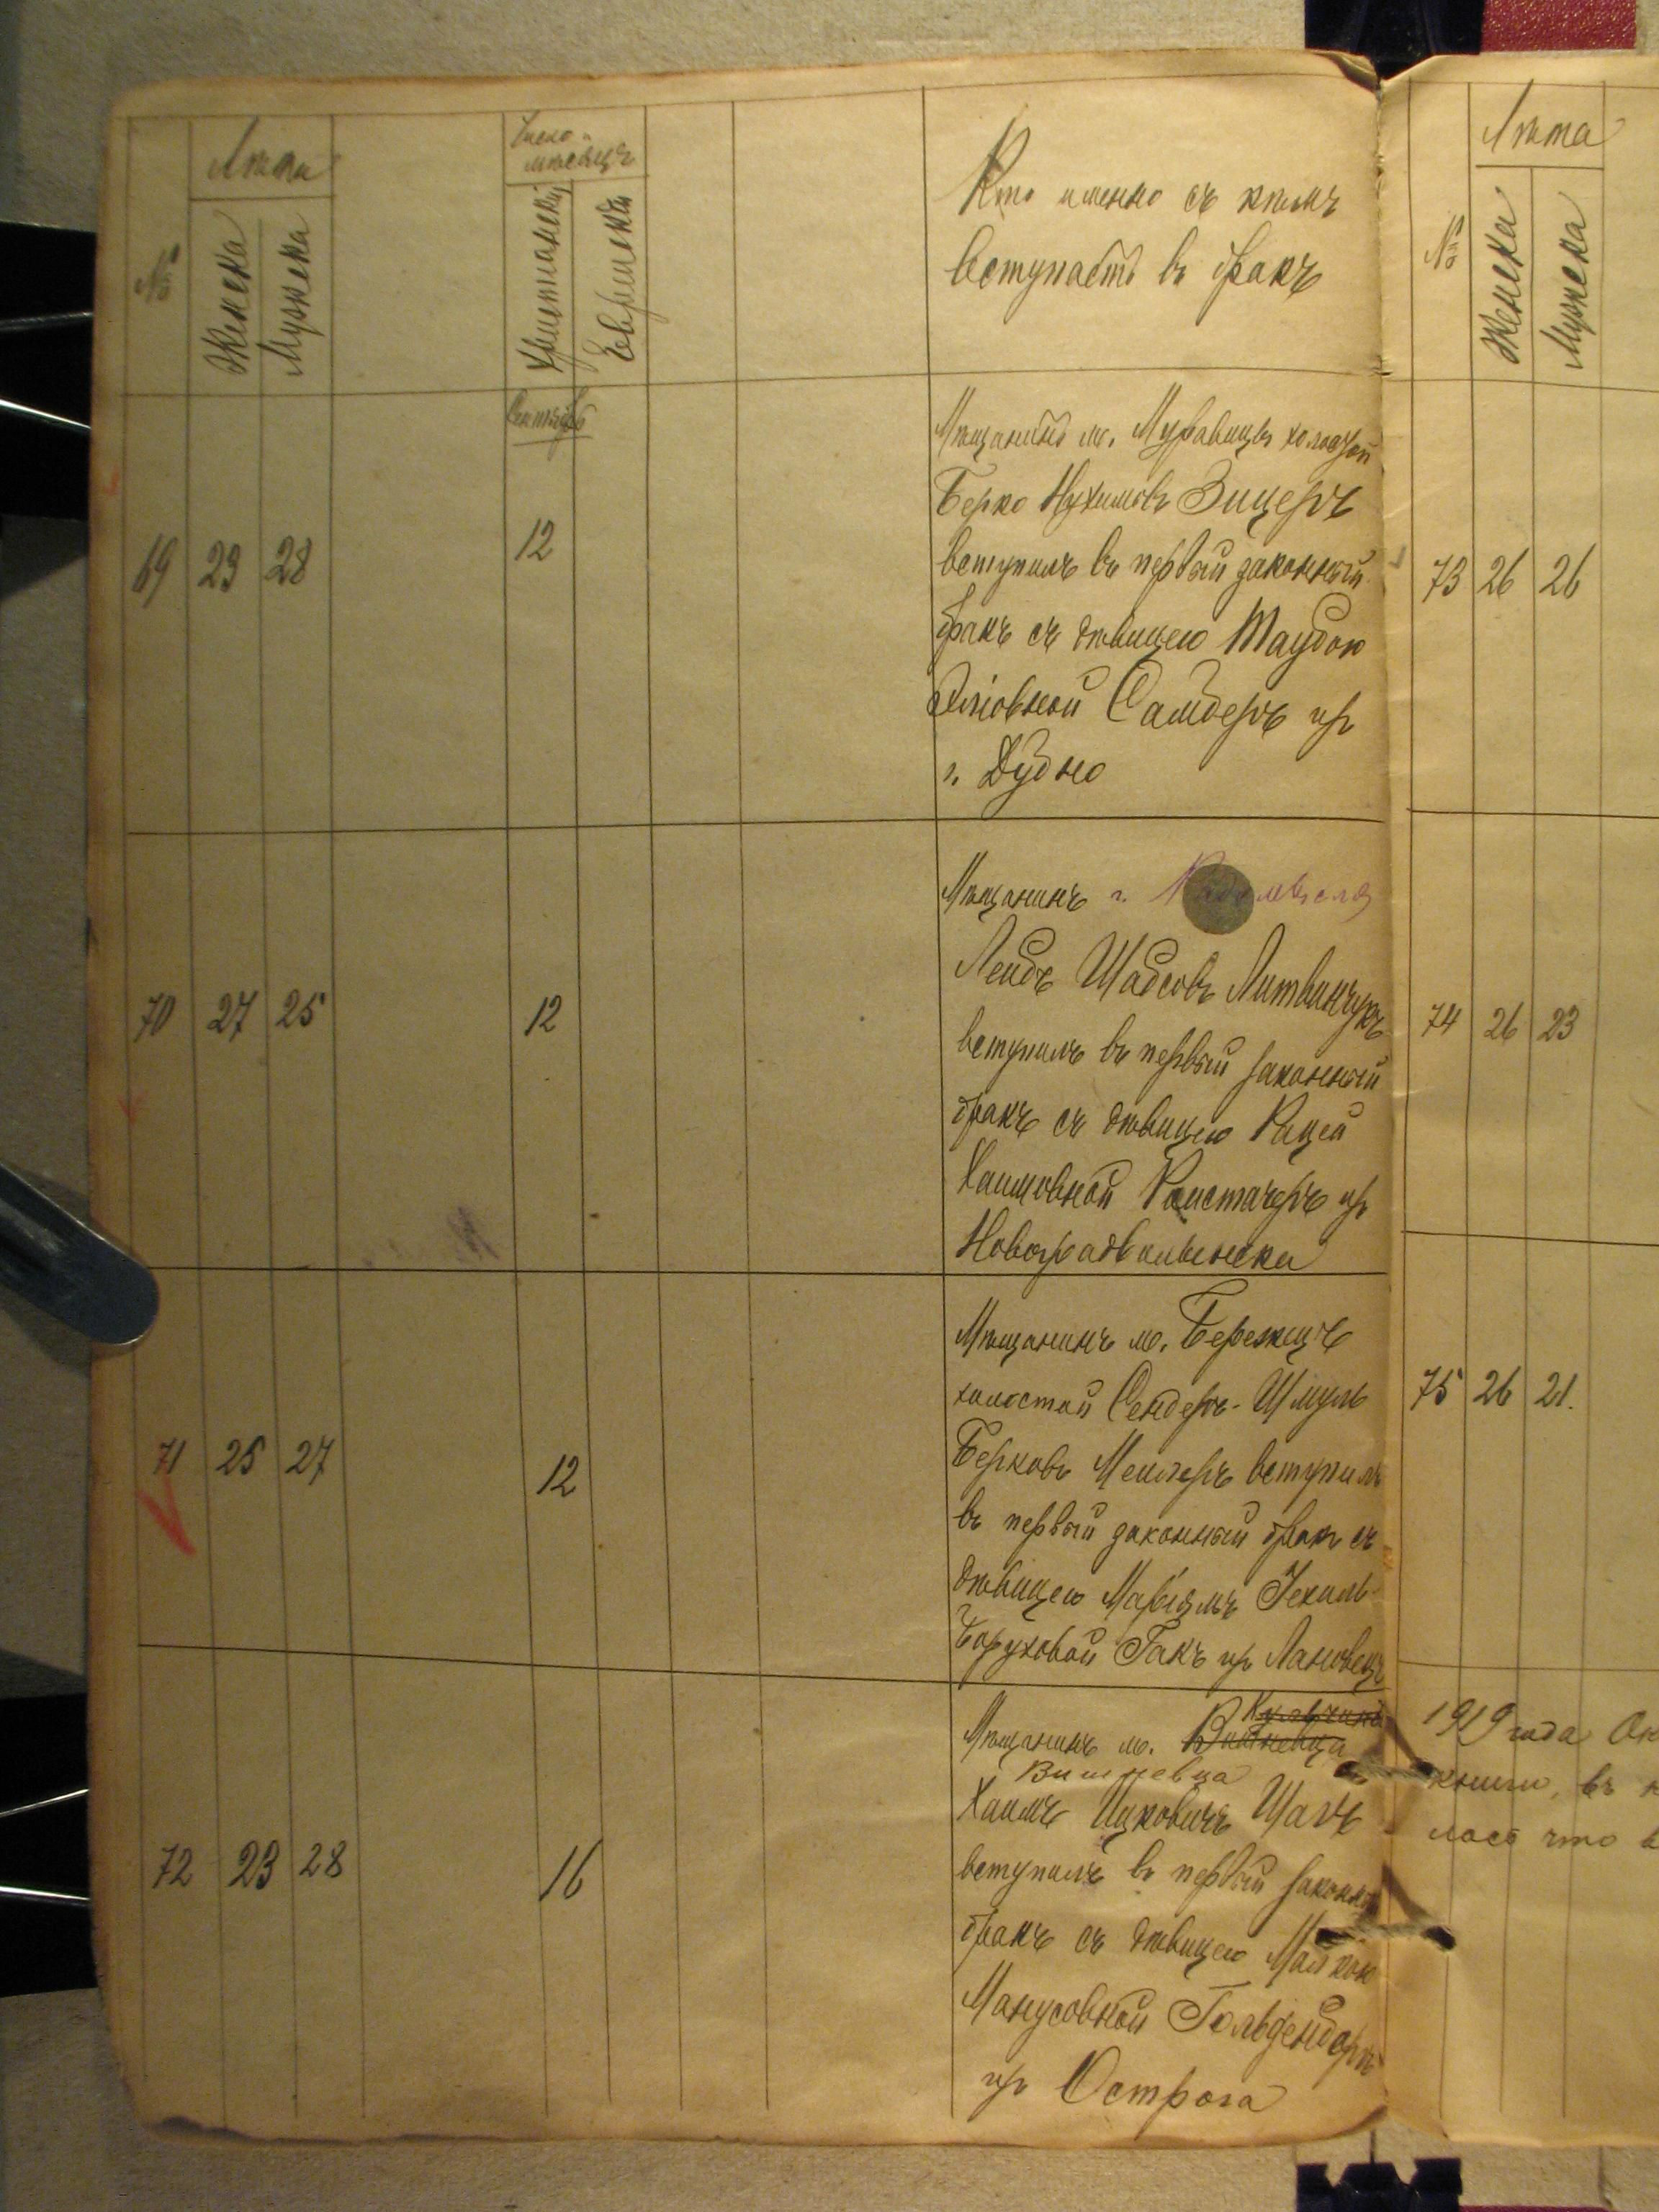 №
Лѣта
Женска
Мужска
Число и
мѣсяцъ
Христіанскій
Еврейскій
Кто именно съ кѣмъ
вступаетъ въ бракъ
Сентябрь
69 23 28 12
Мѣщанинъ м. Муравицъ холостой
Берко Нухимовъ Зицеръ
вступилъ въ первый законный
бракъ съ дѣвицею Таубою
Эліовной Сандеръ изъ
г. Дубно
70 27 25 12
Мѣщанинъ г.
Лейбъ Шабсовъ Литвинчукъ
вступилъ въ первый законный
бракъ съ дѣвицею
Хаимовной изъ
Новоградволынска
71 25 27 12
Мѣщанинъ м. Бережецъ
холостой Сендеръ-Шмуль
Берковъ вступилъ
въ первый законный бракъ съ
дѣвицею Маріямъ
Боруховой Гакъ изъ Лановецъ
72 23 28 16
Мѣщанинъ м. Вишневца
Вишневца
Хаимъ Ицковичъ
вступилъ въ первый законный
бракъ съ дѣвицею
Манусовной
изъ Острога
№
Лѣта
Женска
Мужска
73 26 26
74 26 23
75 26 21.
1919 года Ок
книги, въ к
лось что в